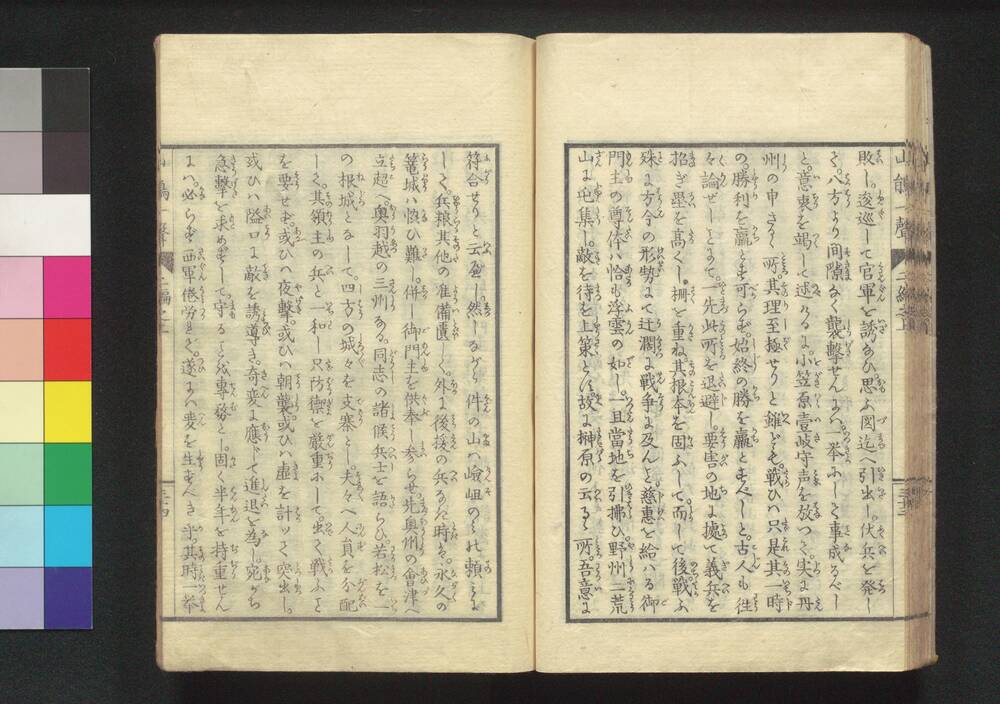 敗し。逡巡して官軍を誘ひ思ふ図迄へ引出し。伏兵を発し
そく八方より間隙なく襲撃せんにハ。一挙にして事成るべし
と。意衷を竭して述けるに。小笠原壹岐守声を放つて。実に丹
州の申さるゝ所。其理至極せりと雖ども。戦ひハ只是其一時
の。勝利を贏とす可らず。始終の勝を贏とすべしと。古人も往
々論ぜしとかや。一先此所を退避し。要害の地に拠て義兵を
招ぎ塁を高くし。柵を重ね其根本を固ふして。而して後戦ふ
殊に方今の形勢にて迂濶に戦争に及んと慈恵を給ハる御
門主の尊体ハ恰も浮雲の如し。一且当地を引拂ひ。野州二荒
山に屯集し。敵を待を上策とす。故に榊原の云るゝ所。吾意に
符合せりと云べし。然しながら件の山ハ嶮岨のミれ頼とな
しく。兵粮其他の准備匱しく。外に後援の兵なき時ハ。永久の
篭城ハ慎ひ難し。件し御門主を供奉し参らせ。先奥州の會津へ
立超へ。奥羽越の三州なる。同志の諸侯兵士を語らひ。若松を一
の根城となして。四方の城々を支寨とし。夫々へ人員を分配
しく。其領主の兵と一和し只防禦を厳重にして出く戦ふこと
を要せず。或ひハ夜撃。或ひハ朝襲。或ひハ虚を計ツて突出し。
或ひハ隘口に敵を誘導き。奇変に應じて進退を為し。宛から
急撃を求めずして守るを専務とし。固く半年を持重せん
にハ。必らず西軍倦労とく。遂にハ変を生ずべき乎。其時一挙